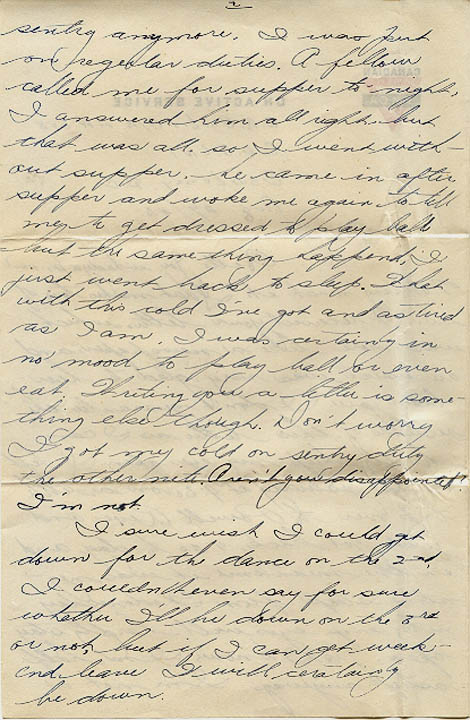 2
sentry anymore. I was put
on regular duties. A fellow
called me for supper to-night,
I answered him all right but
that was all. so I went with-
out supper. he came in after
supper and woke me again to tell
me to get dressed to play ball
but the same thing happend, I
just went back to sleep. What
with this cold I've got and as tired
as I am. I was certainly in
no mood to play ball or even
eat. Writing you a letter is some-
thing else though. Don't worry
I got my cold on sentry duty
the other nite. Aren't you disappointed?
I'm not
I sure wish I could get
down for the dance on the 2nd.
I couldn't even say for sure
whether I'll be down on the 3rd
or not, but if I can get week-
end leave I will certainly
be down.
CANADIAN
ON ACTIVE SERVICE